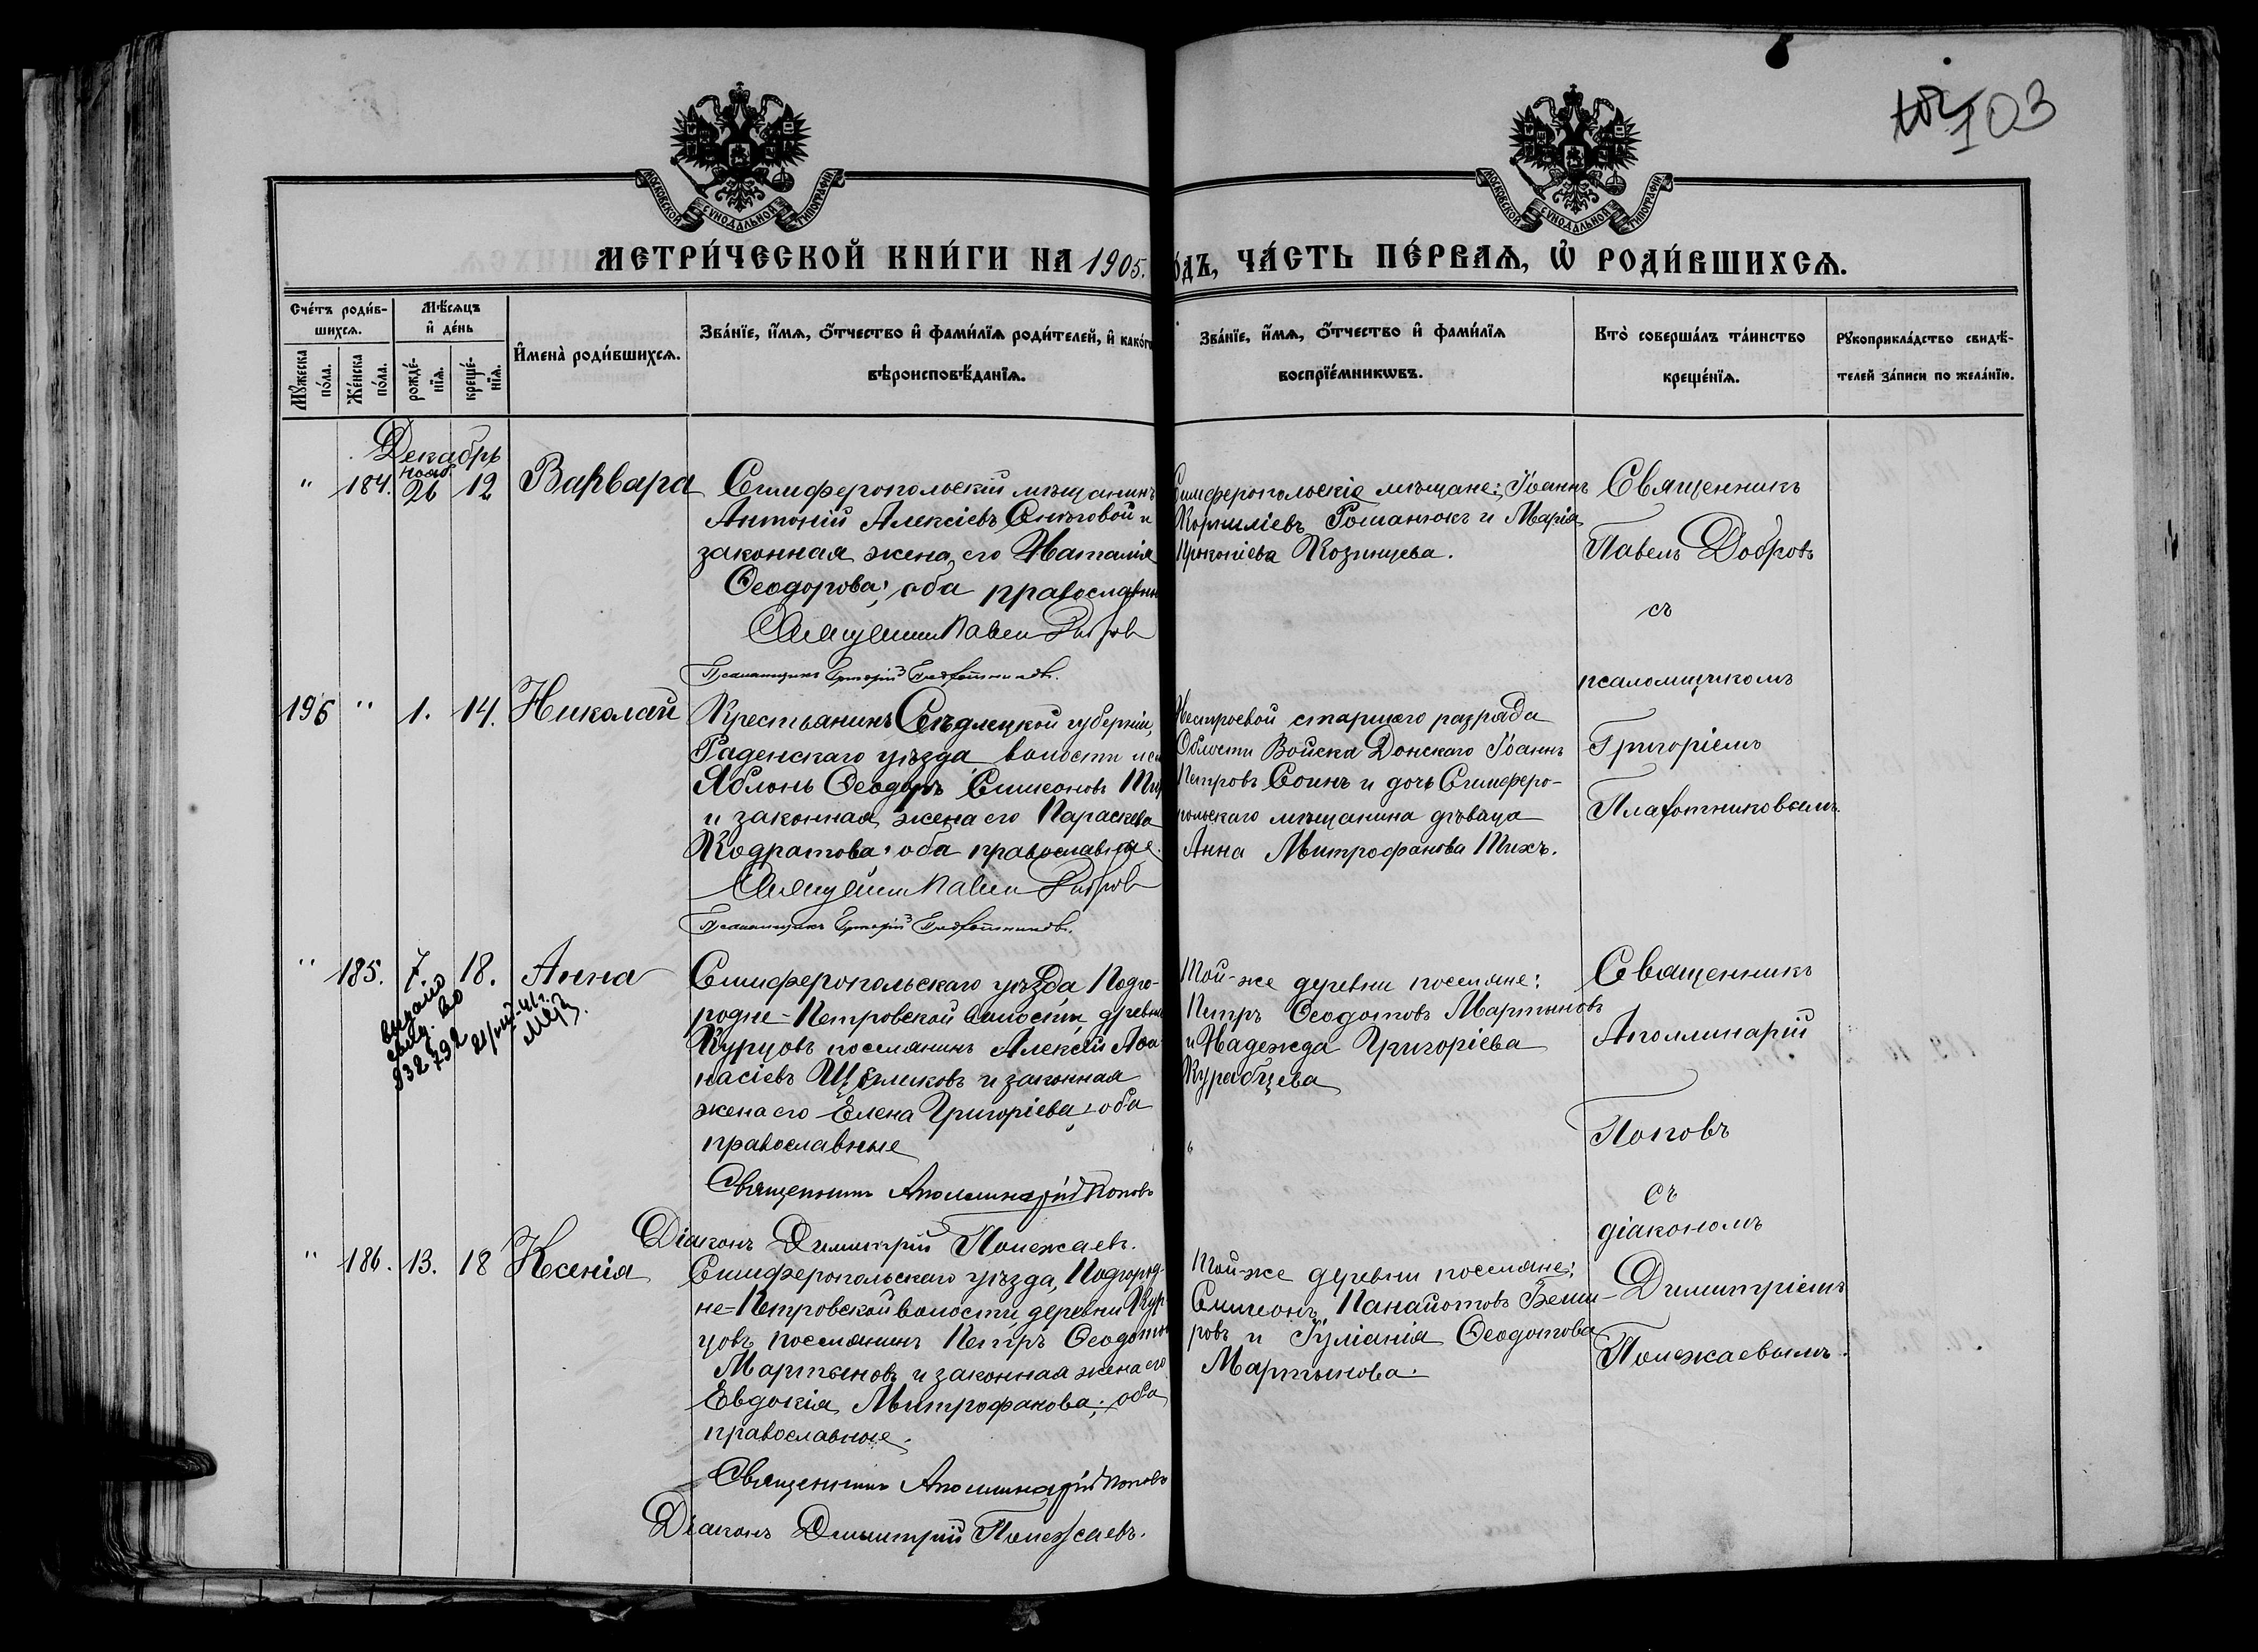 103
МОСКОВСКОЙ СУНОДАЛЬНОЙ ТИПОГРАФІИ
МОСКОВСКОЙ СУНОДАЛЬНОЙ ТИПОГРАФІИ
МЕТРИ́ЧЕСКОЙ КНИ́ГИ НА 1905.
О́ДЪ, ЧА́СТЬ ПЕ́РВАѦ, Ѡ РОДИ́ВШИХСѦ.
Сче́тъ роди́в-
шихсѧ.
Мꙋ́жеска по́ла.
Же́нска по́ла.
Мѣ́сѧцъ и де́нь
рожде́-нїѧ.
креще́-нїѧ.
И҆мена̀ роди́вшихсѧ.
Зва́нїе, и҆́мѧ, ѻ҆́тчество и҆ фами́лїѧ роди́телей, и҆ како́гѡ
вѣроисповѣ́данїѧ.
Зва́нїе, и҆́мѧ, ѻ҆́тчество и҆ фами́лїѧ
воспрїе́мникѡвъ.
Кто̀ соверша́лъ та́инство
креще́нїѧ.
Рꙋкоприкла́дство свидѣ́-
телей за́писи по жела́нїю.
Декабрь
" 184. нояб. 26 12 Варвара
Симферопольскій мѣщанинъ
Антоній Алексіевъ Снѣговой и
законная жена его Наталія
Ѳеодорова; оба православны
Священникъ Павелъ Добров
Псаломщикъ Григорій Плафотниковъ.
Симферопольскіе мѣщане: Іоаннъ
Корниліевъ Романюкъ и Марія
Прокопіева Козинцева.
Священникъ
Павелъ Добровъ
съ
псаломщикомъ
Григоріемъ
Плафотниковымъ
195 " 1. 14. Николай
Крестьянинъ Сѣдлецкой губерніи,
Раденскаго уѣзда волости и
Яблонь Ѳеодоръ Симеоновъ
и законная жена его Параскева
Кодратова; оба православные.
Священникъ Павелъ Добров
Псаломщикъ Григорій Плафотниковъ.
Нестроевой старшого разряда
Области Войска Донскаго Іоаннъ
Петровъ Соинъ и дочь Симферо-
польскаго мѣщанина дѣвица
Анна Митрофанова Тихъ.
" 185. 7 18. Анна
выдано
свид. во
932792
21/VIII-41 г.
Симферопольскаго уѣзда, Подго-
родне-Петровской волости, деревни
Курцовъ поселянинъ Алексій Аѳа-
насіевъ Щегликовъ и законная
жена его Елена Григоріева; оба
православные
Священникъ Аполлинарій Поповъ
Діаконъ Димитрій Полежаевъ.
Той-же деревни поселяне:
Петръ Ѳеодотовъ Мартыновъ
и Надежда Григоріева
Курабцева
Священникъ
Аполлинарій
Поповъ
съ
діакономъ
Димитріемъ
Полежаевымъ.
" 186. 13. 18 Ксенія
Симферопольскаго уѣзда, Подгород-
не-Петровской волости, деревни Кур-
цовъ поселянинъ Петръ Ѳеодотовъ
Мартыновъ и законная жена его
Евдокія Митрофанова; оба
православные.
Священникъ Аполлинарій Поповъ
Діаконъ Димитрій Полежаевъ.
Той-же деревни поселяне:
Симеонъ Панайотовъ Беми-
ровъ и Іуліанія Ѳеодотова
Мартынова.